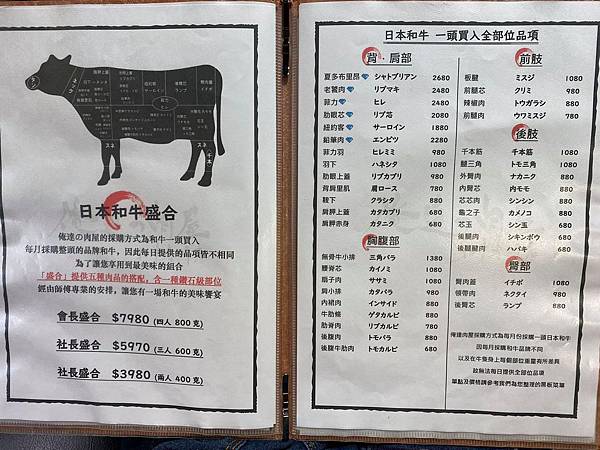 日本和牛盛合
俺達の肉屋的採購方式為和牛一頭買入
每月採購整頭的品牌和牛，因此每日提供的品項皆不相同
為了讓您享用到最美味的組合
「盛合」提供五種肉品的搭配，含一種鑽石級部位
經由師傅專業的安排，讓您有一場和牛的美味饗宴
會長盛合 $7980 (四人 800 克)
社長盛合 $5970 (三人 600 克)
社長盛合 $3980 (兩人 400 克)
日本和牛 一頭買入全部位品項
背．肩部
夏多布里昂 シャトブリアン 2680
老饕肉 リブマキ 2480
菲力 ヒレ 2480
肋眼芯 リブ芯 2080
紐約客 サーロイン 1880
鉛筆肉 エンピツ 2280
菲力羽 ヒレミミ 980
羽下 ハネシタ 1080
肋眼上蓋 リブカブリ 980
背肩里肌 肩ロース 780
鞍下 クラシタ 880
肩胛上蓋 カタカブリ 780
肩胛赤身 カタカブリ 780
胸腹部
無骨牛小排 三角バラ 1380
腰脊芯 カイノミ 1580
扇子肉 ササミ 1080
肩小排 カタバラ 980
內裙肉 インサイド 880
牛肋條 ゲタカルビ 880
肋脊肉 リブカルビ 780
後腹肉 トモバラ 880
後腹牛肋肉 トモカルビ 680
前肢
板腱 ミスジ 1080
前腿芯 クリミ 980
辣椒肉 トウガラシ 880
前腿肉 ウワミスジ 780
後肢
千本筋 千本筋 1080
腿三角 トモ三角 1080
外臀肉 ナカニク 880
內臀芯 內モモ 880
芯芯肉 シンシン 880
龜之子 カメノコ 880
芯玉 シン玉 880
後腿腱肉 シキンボウ 680
後腿腱肉 ハバキ 680
臀部
臀肉蓋 イチボ 1080
領帶肉 ネクタイ 980
後臀芯 ランプ 880
俺達肉屋採購方式為每月份採購一頭日本和牛
因每月採購和牛品牌不同
以及在牛隻身上每個部位重量有所差異
故無法每日提供全部位品項
單點及價格請參考我們為您整理的黑板菜單